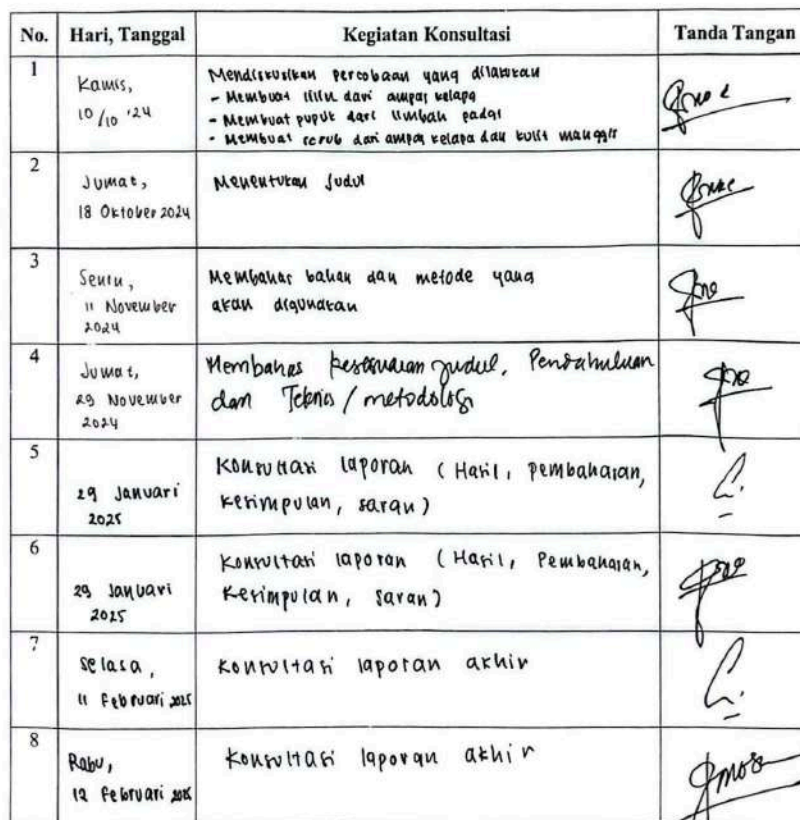 No. Hari, Tanggal Kegiatan Konsultasi Tanda Tangan
1
Kamis,
10/10 '24
Mendiskusikan percobaan yang dilakukan
- Membuat lilin dari ampas kelapa
- Membuat pupuk dari limbah padat
- Membuat scrub dari ampas kelapa dan kulit manggis
2
Jumat,
18 Oktober 2024
Menentukan Judul
3
Senin,
11 November
2024
Membahas bahan dan metode yang
akan digunakan
4
Jumat,
29 November
2024
Membahas kesesuaian judul, Pendahuluan
dan Teknis / metodologi
5
29 Januari
2025
Konsultasi laporan (Hasil, pembahasan,
kesimpulan, saran)
6
29 Januari
2025
Konsultasi laporan (Hasil, Pembahasan,
Kesimpulan, saran)
7
Selasa,
11 Februari 2025
Konsultasi laporan akhir
8
Rabu,
12 Februari 2025
Konsultasi laporan akhir